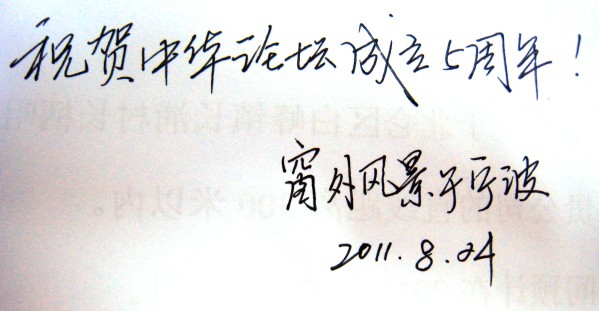 祝贺中华论坛成立5周年!
窗外风景于宁波
2011.8.24